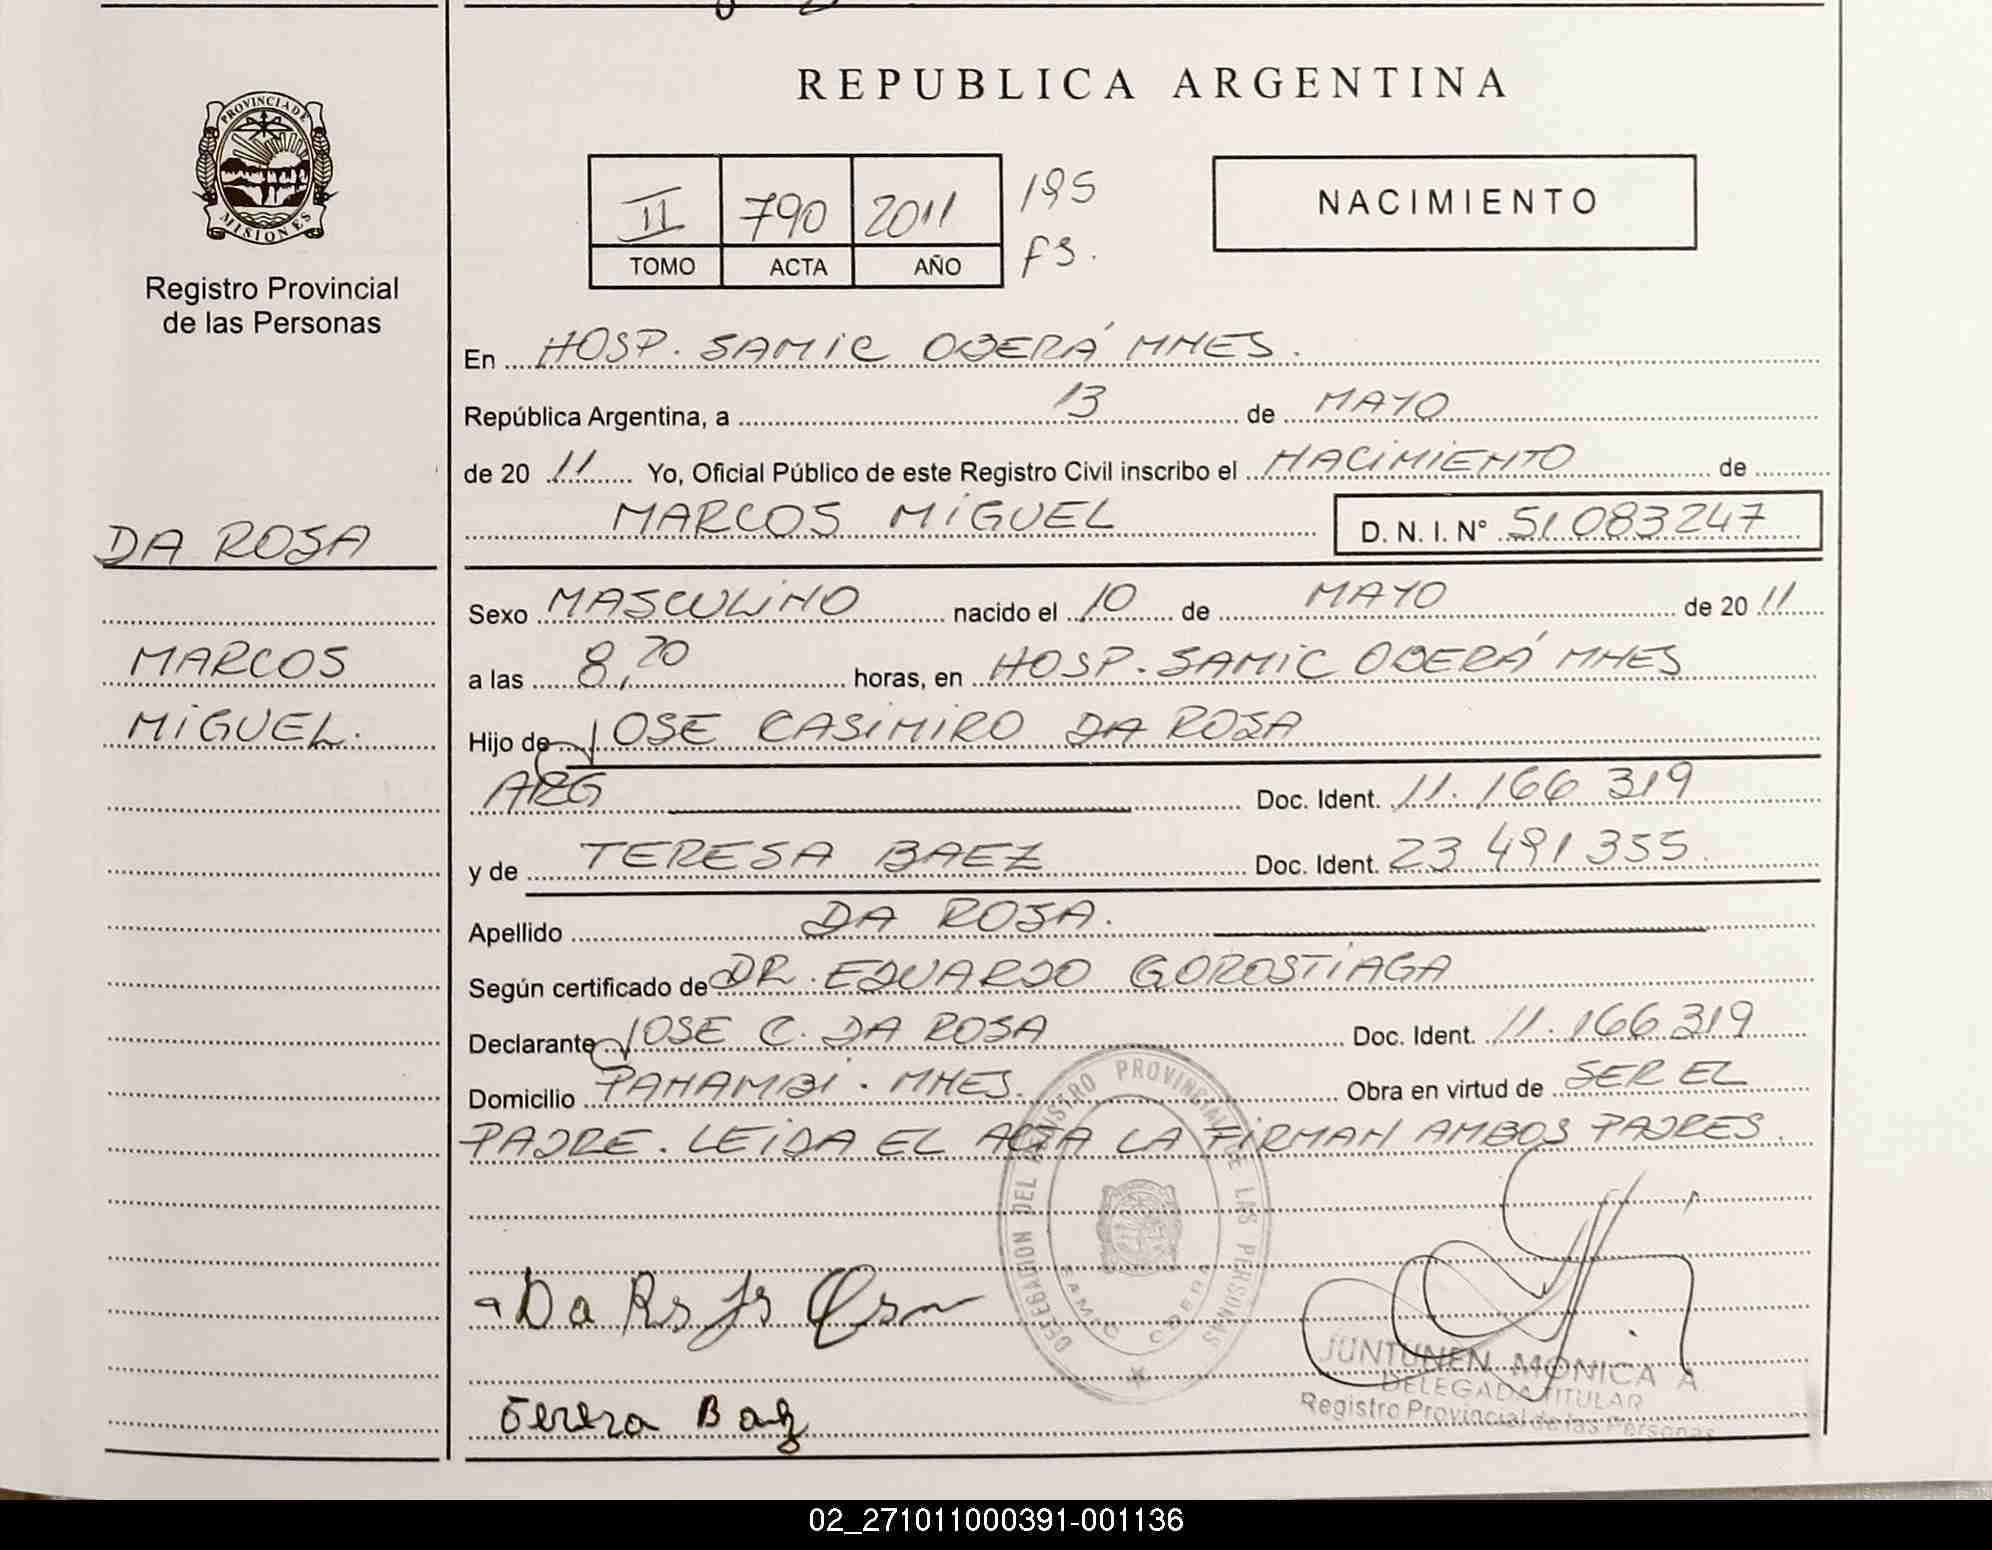 REPUBLICA ARGENTINA
PROVINCIA DE
MISIONES
Registro Provincial
de las Personas
II 790 2011 195
TOMO ACTA AÑO FS.
NACIMIENTO
En HOSP. SAMIC OBERÁ MNES.
República Argentina, a 13 de MAYO
de 20 11 Yo, Oficial Público de este Registro Civil inscribo el NACIMIENTO de
MARCOS MIGUEL D. N. I. N° 51.083247
DA ROSA
MARCOS
MIGUEL.
Sexo MASCULINO nacido el 10 de MAYO de 20 11
a las 8,20 horas, en HOSP. SAMIC OBERÁ MNES
Hijo de JOSE CASIMIRO DA ROSA
ARG Doc. Ident. 11.166 319
y de TERESA BAEZ Doc. Ident. 23 491 355
Apellido DA ROSA.
Según certificado de DR. EDUARDO GOROSTIAGA
Declarante JOSE C. DA ROSA Doc. Ident. 11.166.319
Domicilio PANAMBI. MNES. Obra en virtud de SER EL
PADRE. LEIDA EL ACTA LA FIRMAN AMBOS PADRES.
DELEGACION DEL REGISTRO PROVINCIAL DE LAS PERSONAS
SAMIC OBERA
Da
JUNTUNEN MONICA A.
DELEGADA TITULAR
Registro Provincial de las Personas
Tereza Baez
02_271011000391-001136